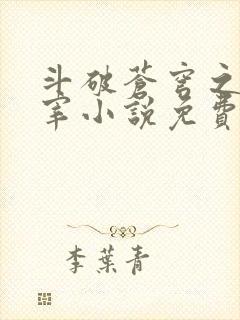 斗破蒼穹之
宰小說免費
李葉青